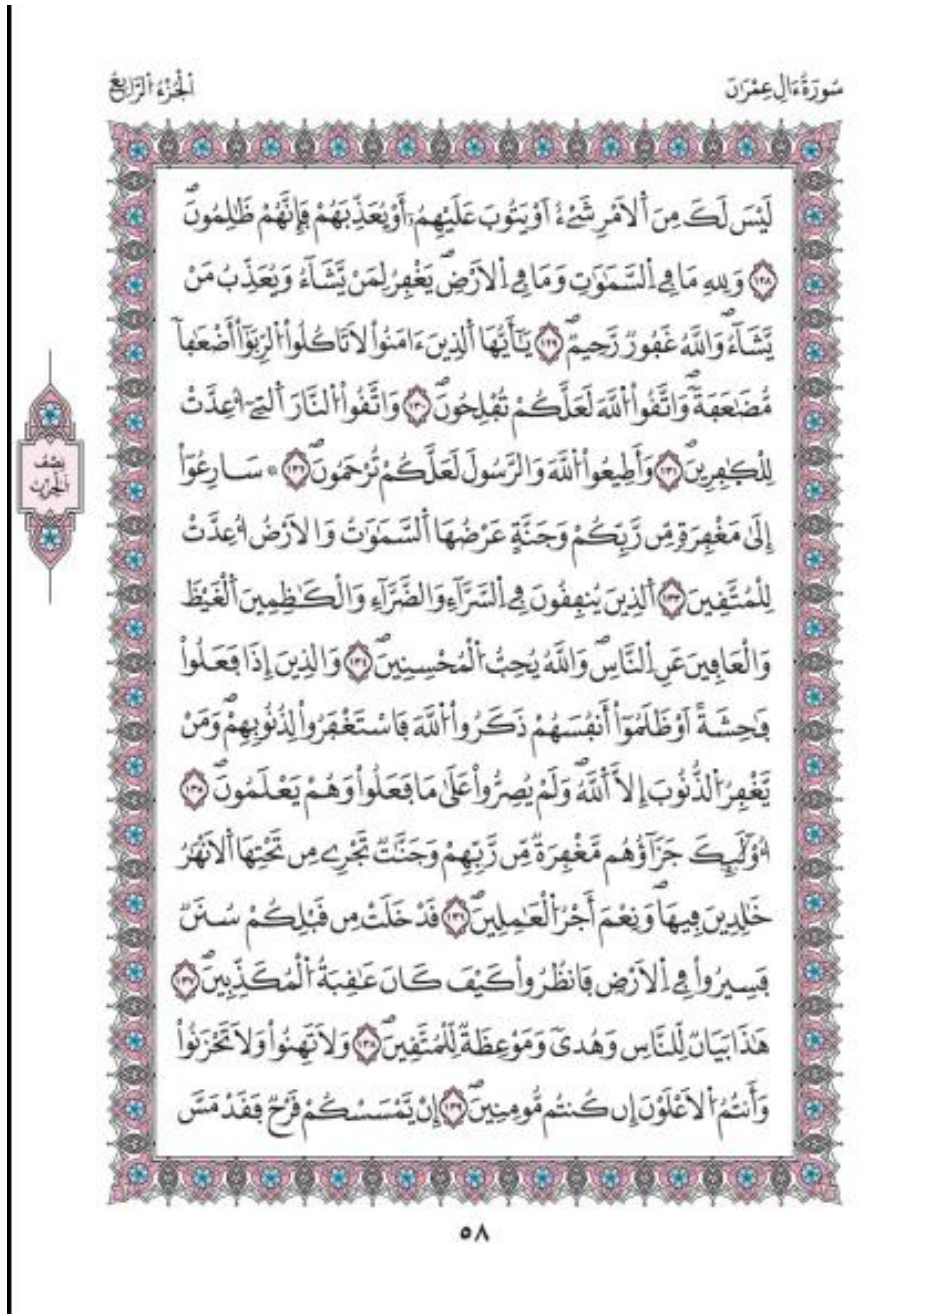 سُورَةُ ءَالِ عِمْرَٰنَ
اَلْجُزْءُ اُلرَّابِعُ
لَيْسَ لَكَ مِنَ اَ۬لَامْرِ شَےْءٌ اَوْ يَتُوبَ عَلَيْهِمُۥٓ أَوْ يُعَذِّبَهُمْ فَإِنَّهُمْ ظَٰلِمُونَۖ
١٢٨ وَلِلهِ مَا فِے اِ۬لسَّمَٰوَٰتِ وَمَا فِے اِ۬لَارْضِۖ يَغْفِرُ لِمَنْ يَّشَآءُ وَيُعَذِّبُ مَنْ
يَّشَآءُۖ وَاللَّهُ غَفُورٌ رَّحِيمٌۖ ١٢٩ يَٰٓأَيُّهَا اَ۬لذِينَ ءَامَنُواْ لَا تَاكُلُواْ اُ۬لرِّبَوٰٓاْ أَضْعَٰفاٗ
مُّضَٰعَفَةٗۖ وَاتَّقُواْ اُ۬للَّهَ لَعَلَّكُمْ تُفْلِحُونَۖ ١٣٠ وَاتَّقُواْ اُ۬لنَّارَ اَ۬لتِےٓ أُعِدَّتْ
لِلْكٰ۪فِرِينَۖ ١٣١ وَأَطِيعُواْ اُ۬للَّهَ وَالرَّسُولَ لَعَلَّكُمْ تُرْحَمُونَۖ ١٣٢ ۞ سَارِعُوٓاْ
إِلَىٰ مَغْفِرَةٖ مِّن رَّبِّكُمْ وَجَنَّةٍ عَرْضُهَا اَ۬لسَّمَٰوَٰتُ وَالَارْضُ أُعِدَّتْ
لِلْمُتَّقِينَ ١٣٣ اَ۬لذِينَ يُنفِقُونَ فِے اِ۬لسَّرَّآءِ وَالضَّرَّآءِ وَالْكَٰظِمِينَ اَ۬لْغَيْظَ
وَالْعَافِينَ عَنِ اِ۬لنَّاسِۖ وَاللَّهُ يُحِبُّ اُ۬لْمُحْسِنِينَۖ ١٣٤ وَالذِينَ إِذَا فَعَلُواْ
فَٰحِشَةً اَوْ ظَلَمُوٓاْ أَنفُسَهُمْ ذَكَرُواْ اُ۬للَّهَ فَاسْتَغْفَرُواْ لِذُنُوبِهِمْۖ وَمَنْ
يَّغْفِرُ اُ۬لذُّنُوبَ إِلَّا اَ۬للَّهُۖ وَلَمْ يُصِرُّواْ عَلَىٰ مَا فَعَلُواْ وَهُمْ يَعْلَمُونَۖ ١٣٥
أُوْلَٰٓئِكَ جَزَآؤُهُم مَّغْفِرَةٌ مِّن رَّبِّهِمْ وَجَنَّٰتٌ تَجْرِے مِن تَحْتِهَا اَ۬لَانْهَٰرُ
خَٰلِدِينَ فِيهَاۖ وَنِعْمَ أَجْرُ اُ۬لْعَٰمِلِينَۖ ١٣٦ قَدْ خَلَتْ مِن قَبْلِكُمْ سُنَنٌ
فَسِيرُواْ فِے اِ۬لَارْضِ فَانظُرُواْ كَيْفَ كَانَ عَٰقِبَةُ اُ۬لْمُكَذِّبِينَۖ ١٣٧
هَٰذَا بَيَانٌ لِّلنَّاسِ وَهُدىٗ وَمَوْعِظَةٌ لِّلْمُتَّقِينَۖ ١٣٨ وَلَا تَهِنُواْ وَلَا تَحْزَنُواْ
وَأَنتُمُ اُ۬لَاعْلَوْنَ إِن كُنتُم مُّومِنِينَۖ ١٣٩ إِنْ يَّمْسَسْكُمْ قَرْحٌ فَقَدْ مَسَّ
نِصْفُ
اُلْحِزْبِ
٥٨